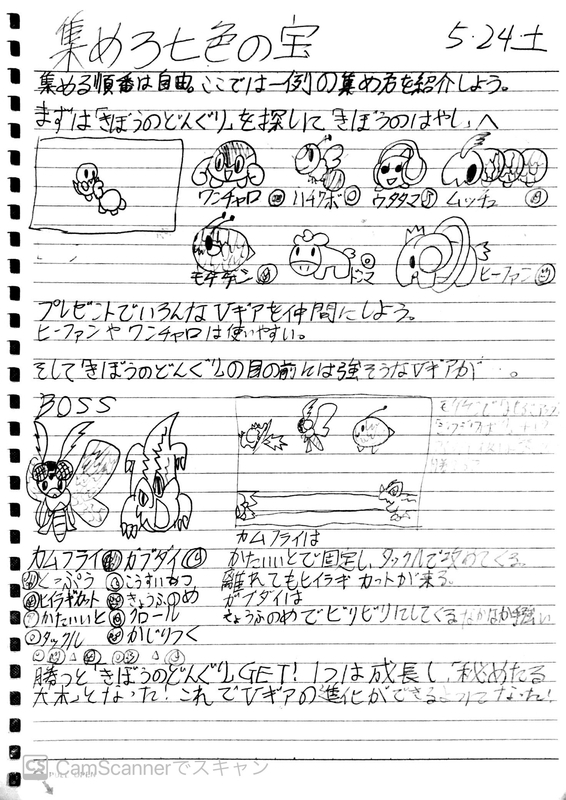 集めろ七色の宝
5・24土
集める順番は自由。ここでは一例の集め方を紹介しよう。
まずは「きぼうのどんぐり」を探して「きぼうのはやし」へ
ワンチャロ ハチクボ ウタタマ ムッチュ
モタゲン ドマ ヒーファン
プレゼントでいろんなVギアを仲間にしよう。
ヒーファンやワンチャロは使いやすい。
そして「きぼうのどんぐり」の目の前には強そうなVギアが…。
BOSS
カムフライ ガブダイ
とっぷう こうすいかつ
ヒイラギカット きょうふのめ
かたいいと クロール
タックル かじりつく
カムフライは
かたいいとで固定し、タックルで攻めてくる。
離れてもヒイラギカットが来る。
ガブダイは
きょうふのめでビリビリにしてくる なかなか手強い
勝つと「きぼうのどんぐり」GET! 1つは成長し、「秘めたる
大木」となった!これでVギアの進化ができるようになった!
CS CamScannerでスキャン